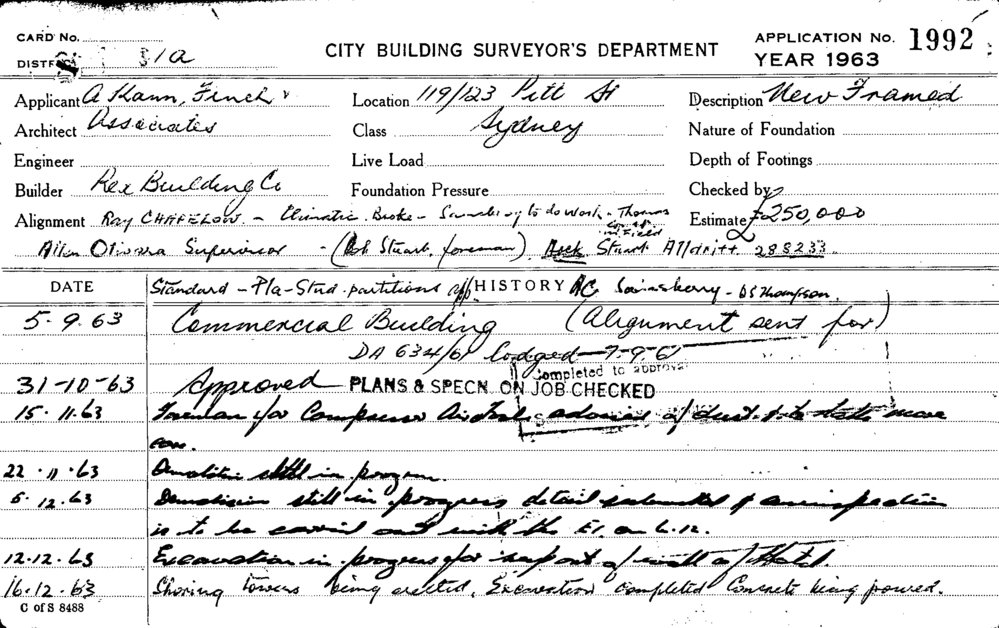 CARD No. CITY BUILDING SURVEYOR'S DEPARTMENT APPLICATION No. 1992
DISTRICT 31a YEAR 1963
Applicant A Kann, Finch & Location 119/123 Pitt St Description New Framed
Architect Associates Class Sydney Nature of Foundation
Engineer Live Load Depth of Footings
Builder Rex Building Co Foundation Pressure Checked by
Alignment Ray CHAPELOW - Climatic Broke - Sainsbury to do work - Thomas Estimate £250,000
in Field
Allen Olivera Supervisor - (Bob Stuart, foreman) Stuart Alldritt 288233
DATE Standard - Pla-Stud partitions app HISTORY AC Sainsberry - DS Thompson.
5.9.63 Commercial Building (Alignment sent for)
DA 634/61 lodged 7-9-6
Completed to approval
31-10-63 Approved PLANS & SPECN. ON JOB CHECKED
15.11.63 Foreman for Compressor Air of dust to take more
care.
22.11.63 Demolition still in progress.
6.12.63 Demolition still in progress detail submitted & an inspection
is to be carried out with the E1. on 6.12.
12.12.63 Excavation in progress for support of wall of Hotel.
16.12.63 Shoring towers being erected, Excavation completed Concrete being poured.
C of S 8488